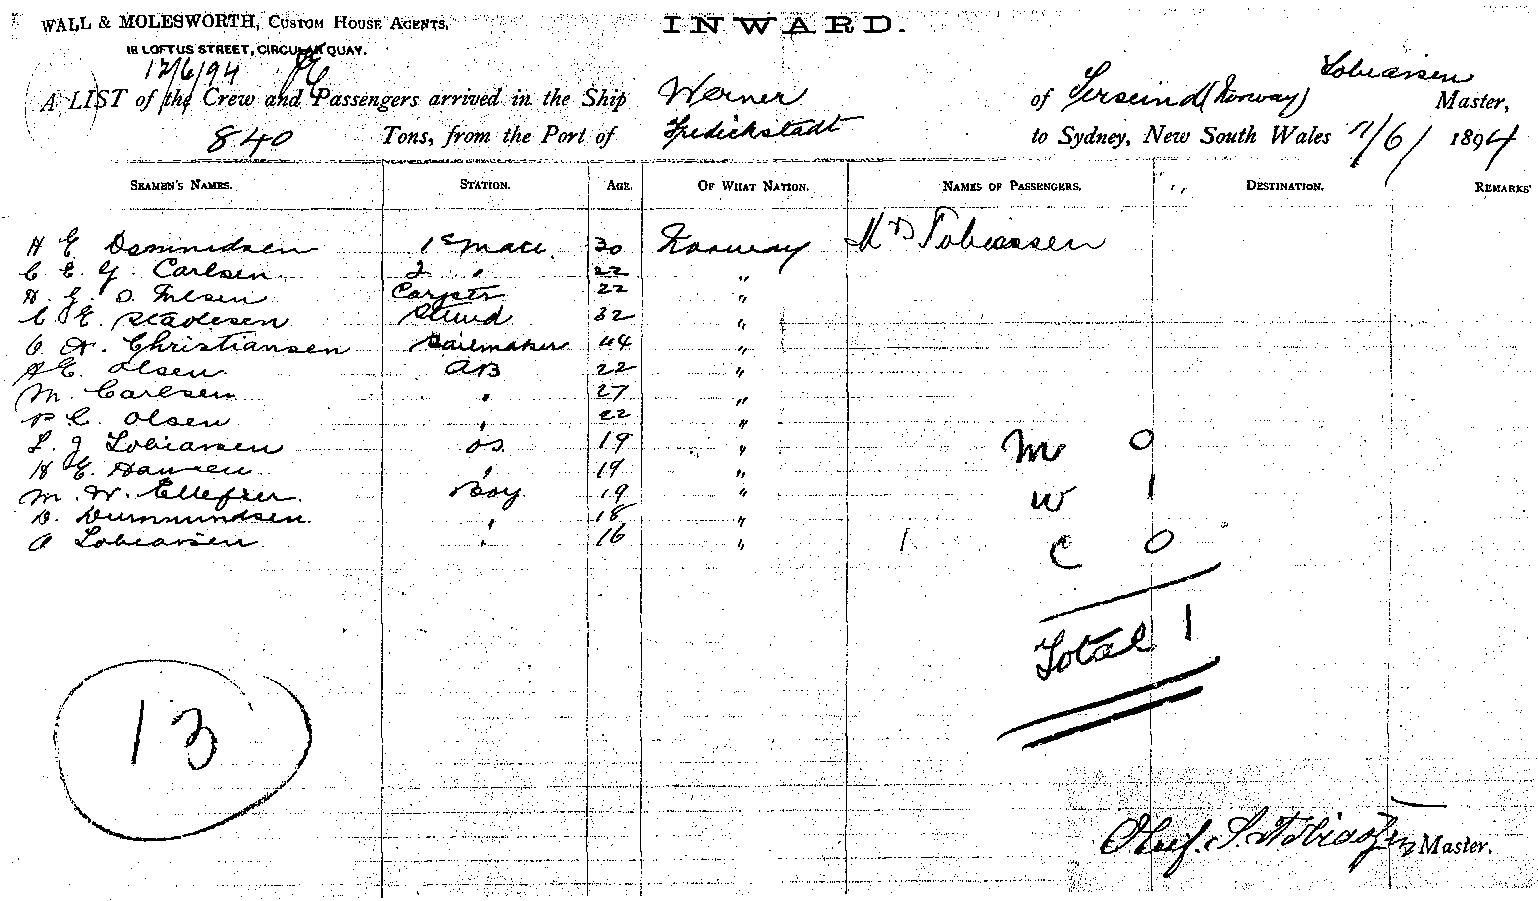 WALL & MOLESWORTH, CUSTOM HOUSE AGENTS,
INWARD.
18 LOFTUS STREET, CIRCULAR QUAY.
12/6/94
A LIST of the Crew and Passengers arrived in the Ship Werner of (Norway) Tobiassen Master,
840 Tons, from the Port of Fredickstadt to Sydney, New South Wales 11/6/ 1894
SEAMEN'S NAMES. STATION. AGE. OF WHAT NATION. NAMES OF PASSENGERS. DESTINATION. REMARKS
H E 1st Mate 30 Norway Mrs Tobiassen
C E G. Carlsen 2 " 22 "
H. E. O. Carptr 22 "
C E. Stuud 32 "
O H. Christiansen Sailmaker 44 "
H E. Olsen AB 22 "
M. Carlsen " 27 "
P C. Olsen " 22 "
L. J Tobiassen OS. 19 "
H E. Hansen " 19 "
M. W. Ellefsen Boy 19 "
D. " 18 "
O Tobiassen " 16 " 1
M 0
W 1
C 0
Total 1
13
Oluf. Tobiassen Master.